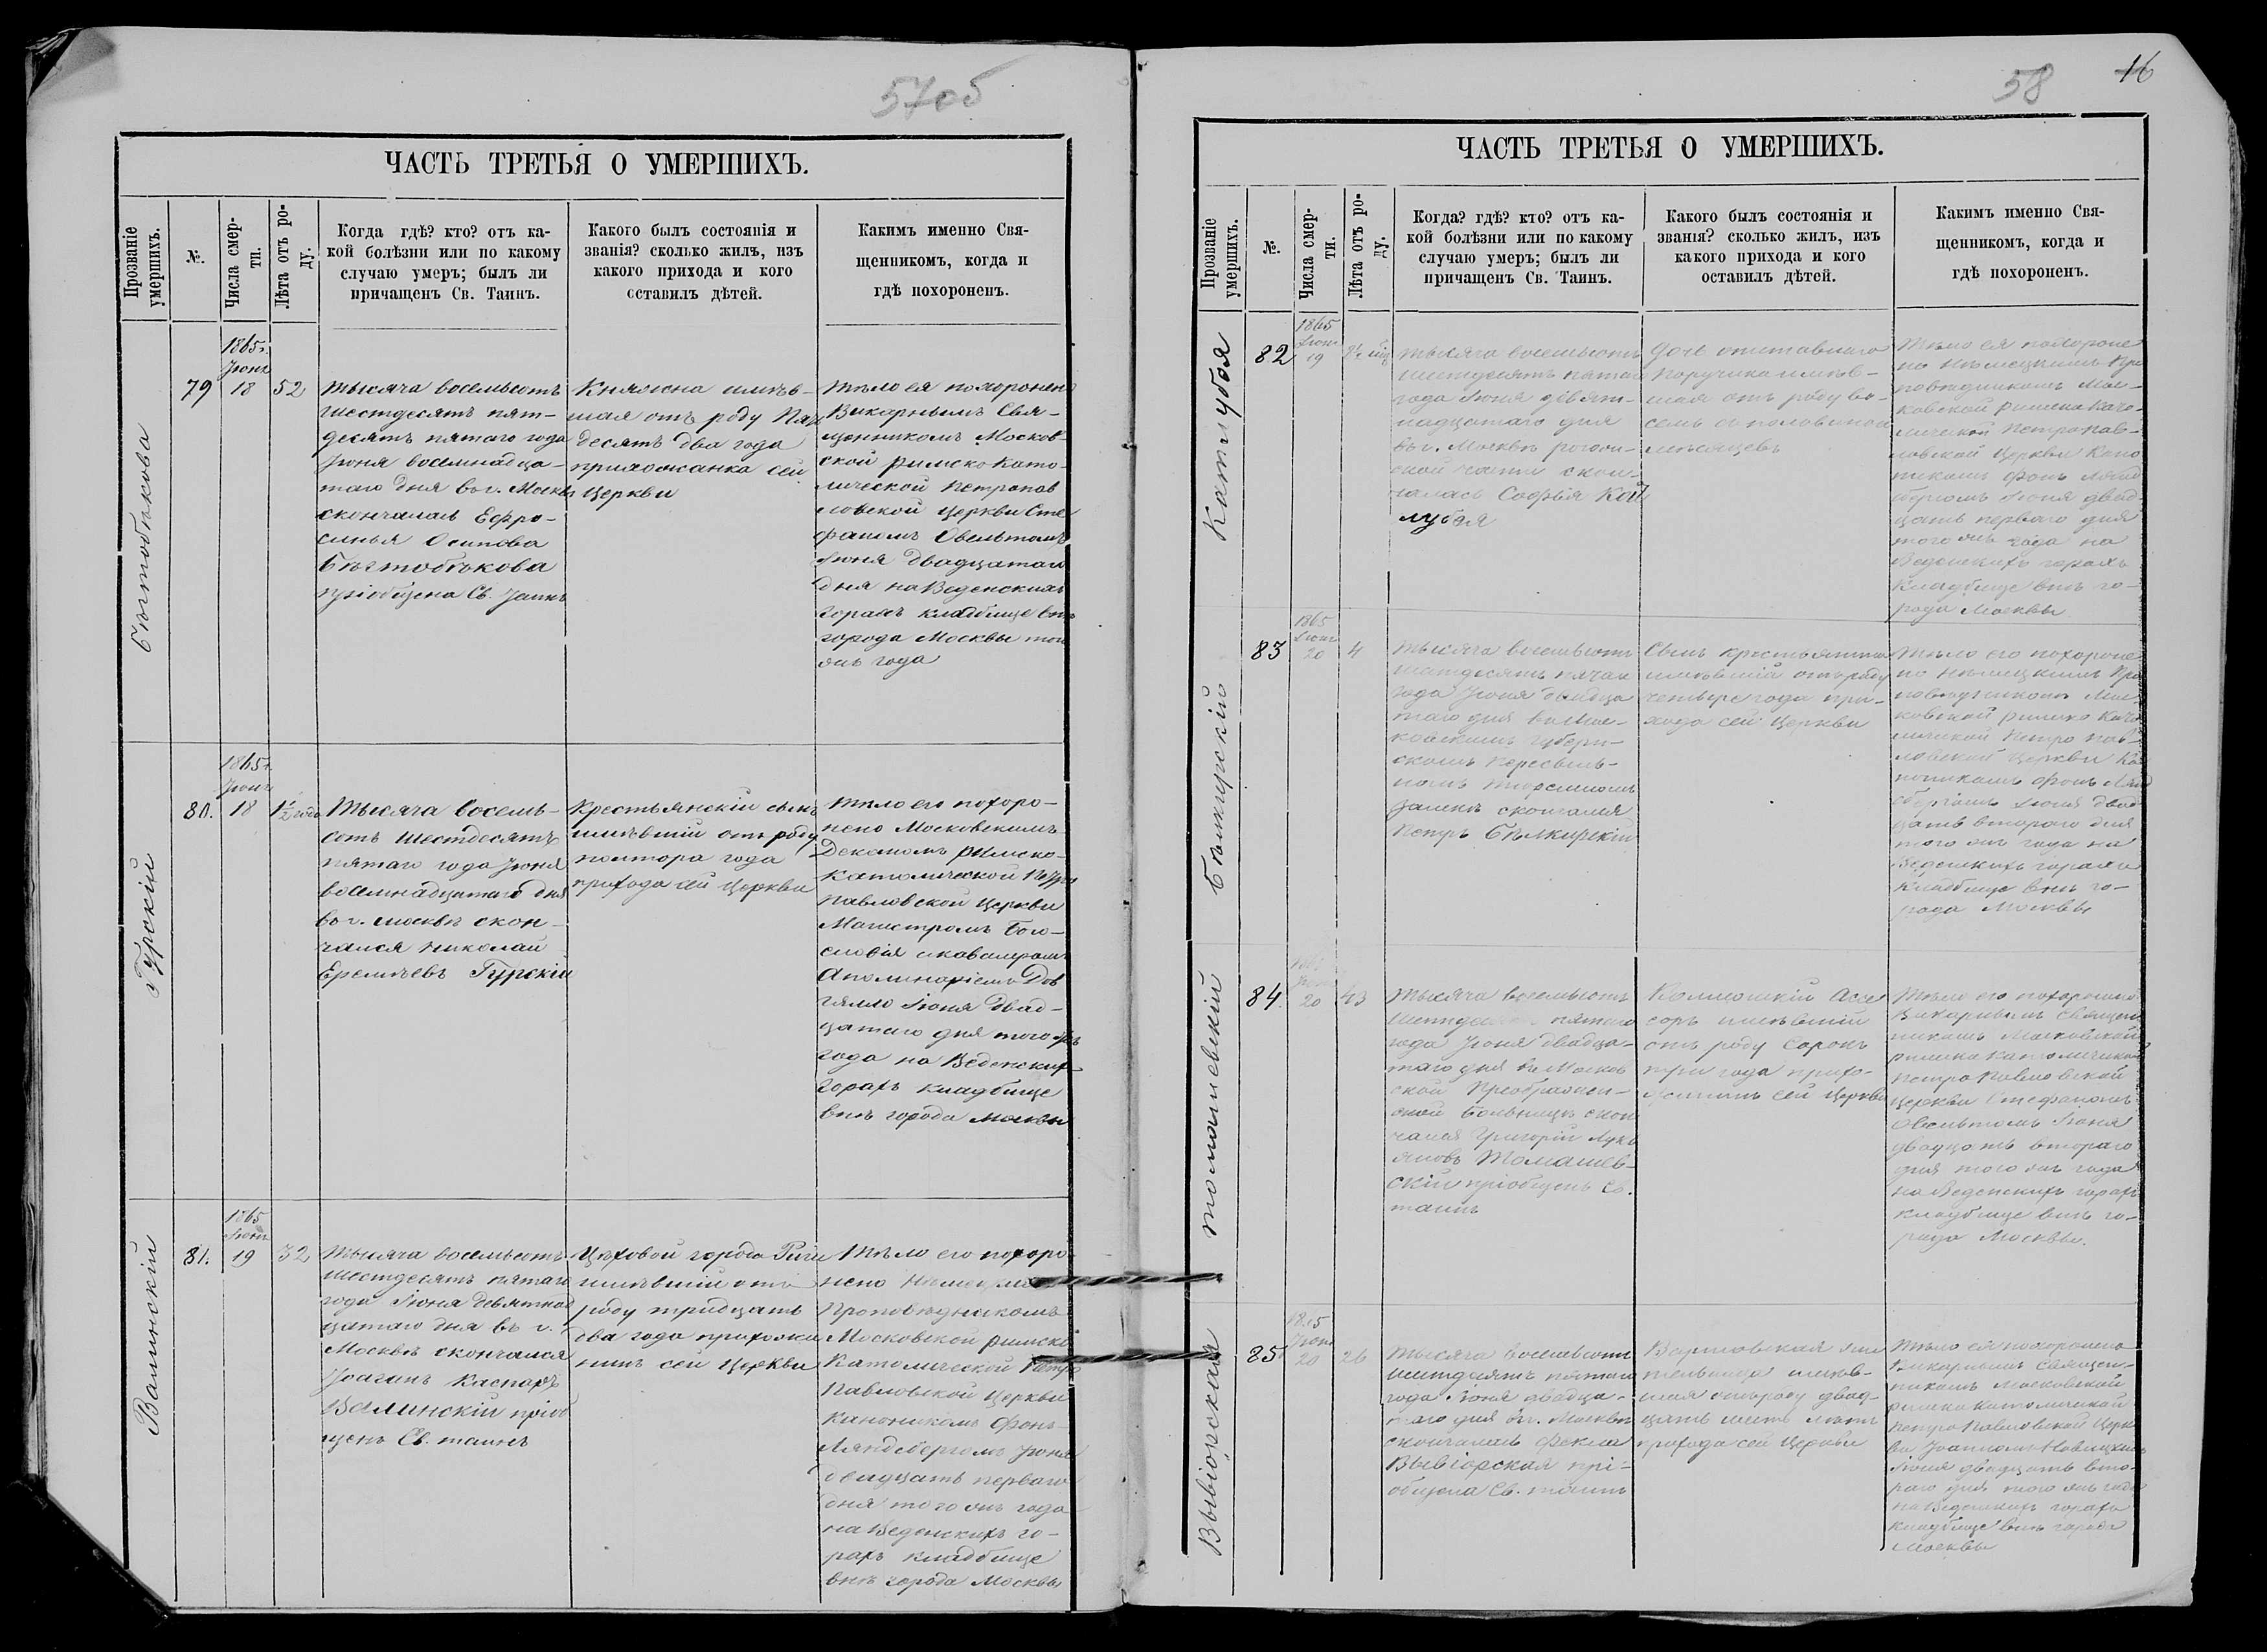 57об
ЧАСТЬ ТРЕТЬЯ О УМЕРШИХЪ.
Прозваніе умершихъ.
№.
Числа смер-
ти.
Лѣта отъ ро-
ду.
Когда гдѣ? кто? отъ ка-
кой болѣзни или по какому
случаю умеръ; былъ ли
причащенъ Св. Таинъ.
Какого былъ состоянія и
званія? сколько жилъ, изъ
какого прихода и кого
оставилъ дѣтей.
Какимъ именно Свя-
щенникомъ, когда и
гдѣ похороненъ.
79
1865г.
Іюня
18
52
тысяча восемьсотъ
шестдесятъ пят-
десятъ пятаго года
Іюня восемнадца-
таго дня въ г. Москвѣ
скончалась Ефро-
синья Осипова
пріобщена Св. Таинъ
Княжна имѣв-
шая отъ роду
десятъ два года
прихожанка сей
Церкви
тѣло ея похоронено
Викарнымъ Свя-
щенникомъ Москов-
ской римско Като-
лической Петропав
ловской Церкви Сте
фаномъ
Іюня двадцатаго
дня на Веденскихъ
горахъ кладбище внѣ
города Москвы того
же года
Гурскій
80.
1865г.
Іюня
18
1½ года
Тысяча восемь-
сотъ шестдесятъ
пятаго года Іюня
восемнадцатаго дня
въ г. Москвѣ скон-
чался Николай
Еремѣевъ Гурскій
Крестьянскій сынъ
имѣвшій отъ роду
полтора года
прихода сей Церкви
тѣло его похоро-
нено Московскимъ
Деканомъ Римско-
католической Петро
павловской Церкви
Магистромъ Бого-
словія и кавалеромъ
Аполинаріемъ Дов
гялло Іюня двад-
цатаго дня того же
года на Веденскихъ
горахъ кладбище
внѣ города Москвы
Валинскій
81.
1865
Іюня
19
32
тысяча восемьсотъ
шестдесятъ пятаго
года Іюня девятнад
цатаго дня въ г.
Москвѣ скончался
Іоганъ Каспаръ
Валинскій пріоб
щенъ Св. таинъ
Цѣховой города Риги
имѣвшій отъ
роду тридцать
два года прихожа
нинъ сей Церкви
тѣло его похоро-
нено
Проповѣдникомъ
Московской римско
Католической Петро
Павловской Церкви
Каноникомъ Фонъ-
Ляндбергомъ Іюня
двадцать перваго
дня того же года
на Веденскихъ го-
рахъ кладбище
внѣ города Москвы
58
16
ЧАСТЬ ТРЕТЬЯ О УМЕРШИХЪ.
Прозваніе умершихъ.
№.
Числа смер-
ти.
Лѣта отъ ро-
ду.
Когда? гдѣ? кто? отъ ка-
кой болѣзни или по какому
случаю умеръ; былъ ли
причащенъ Св. Таинъ.
Какого былъ состоянія и
званія? сколько жилъ, изъ
какого прихода и кого
оставилъ дѣтей.
Какимъ именно Свя-
щенникомъ, когда и
гдѣ похороненъ.
82
1865
Іюня
19
тысяча восемьсотъ
шестдесятъ пятаго
года Іюня девят-
надцатаго дня
въ г. Москвѣ рогож-
ской части скон-
чалась Софья
Дочь отставнаго
Поручика имѣв-
шая отъ роду во-
семь съ половиною
мѣсяцевъ
тѣло ея похороне
но Нѣмецкимъ Про
повѣдникомъ Мос-
ковской римско Като-
лической Петропав-
ловской Церкви Кано
никомъ фонъ Лянд
бергомъ Іюня двад-
цать перваго дня
того же года на
Веденскихъ горахъ
кладбище внѣ го-
рода Москвы
83
1865
Іюня
20
4
тысяча восемьсотъ
шестдесятъ пятаго
года Іюня двадца
таго дня въ Мос-
ковскомъ Губерн-
скомъ Пересыль-
номъ тюремномъ
замкѣ скончался
Петръ
Сынъ крестьянина
имѣвшій отъ роду
четыре года при-
хода сей Церкви
тѣло его похороне
но Нѣмецкимъ Про
повѣдникомъ Мос-
ковской римско Като
лической Петро пав-
ловской Церкви Ка
ноникомъ фонъ Лянд
бергомъ Іюня двад
цать втораго дня
того же года на
Веденскихъ горахъ
кладбище внѣ го-
рода Москвы
томашевскій
84.
Іюня
20
43
тысяча восемьсотъ
пятаго
года Іюня двадца-
таго дня въ Москов
ской Преображен-
ской Больницѣ скон
чался Григорій Лукь
яновъ Томашев-
скій пріобщенъ Св.
таинъ
Колежскій Ассе
соръ имѣвшій
отъ роду сорокъ
три года прихо-
жанинъ сей Церкви
Тѣло его похоронено
Викарнымъ Священ
никомъ Московской
римско католической
Петро Павловской
Церкви Стефаномъ
Іюня
двадцать втораго
дня того же года
на Веденскихъ горахъ
кладбище внѣ го-
рода Москвы.
Вывіорская
85
1865
Іюня
20
26
тысяча восемьсотъ
пятаго
года Іюня двадца-
таго дня въ г. Москвѣ
скончалась Фекла
Вывіорская прі-
общена Св. таинъ
Варшавская жи
тельница имѣв-
шая отъ роду двад-
цать шесть лѣтъ
прихода сей Церкви
тѣло ея похоронено
Викарнымъ Священ-
никомъ Московской
римско католической
Петро Павловской Церк
ви
Іюня двадцать вто-
раго дня того же года
на Веденскихъ горахъ
кладбище внѣ города
Москвы